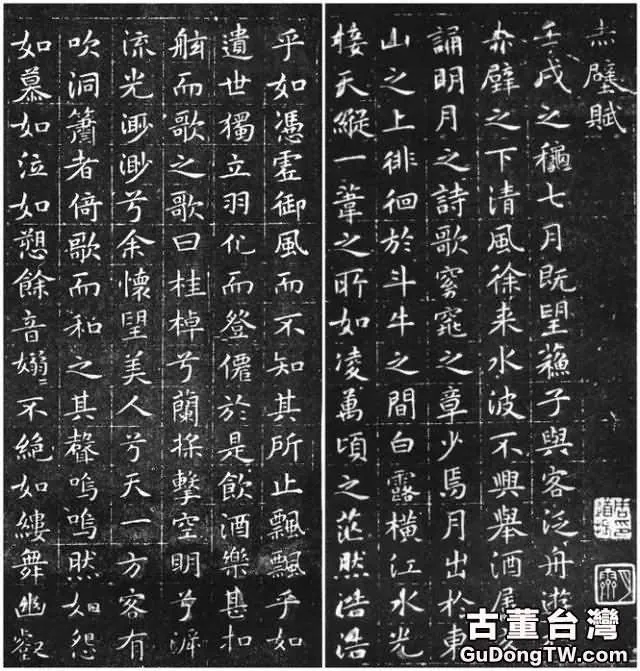 赤壁賦
壬戌之穐七月既望蘓子與客泛舟遊
赤壁之下清風徐来水波不興舉酒属
誦明月之詩歌窈窕之章少焉月出於東
山之上徘徊於斗牛之間白露橫江水光
接天縱一葦之所如凌萬頃之茫然浩浩
乎如憑虛御風而不知其所止飄飄乎如
遺世獨立羽化而登僊於是飲酒樂甚扣
舷而歌之歌曰桂棹兮蘭槳擊空明兮泝
流光渺渺兮余懷望美人兮天一方客有
吹洞簫者倚歌而和之其聲嗚嗚然如怨
如慕如泣如愬餘音嫋〻不絕如縷舞幽壑
古董台灣
GuDongTW.com